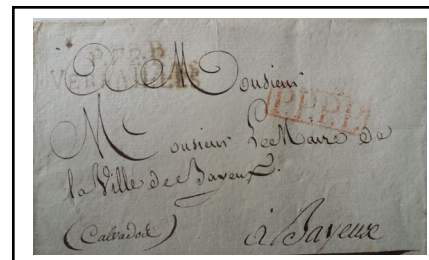 P.72.P.
VERSAILLES
P.P.P.P.
A Monsieur
Monsieur Le Maire de
la Ville de Bayeux.
(Calvados)
à Bayeux